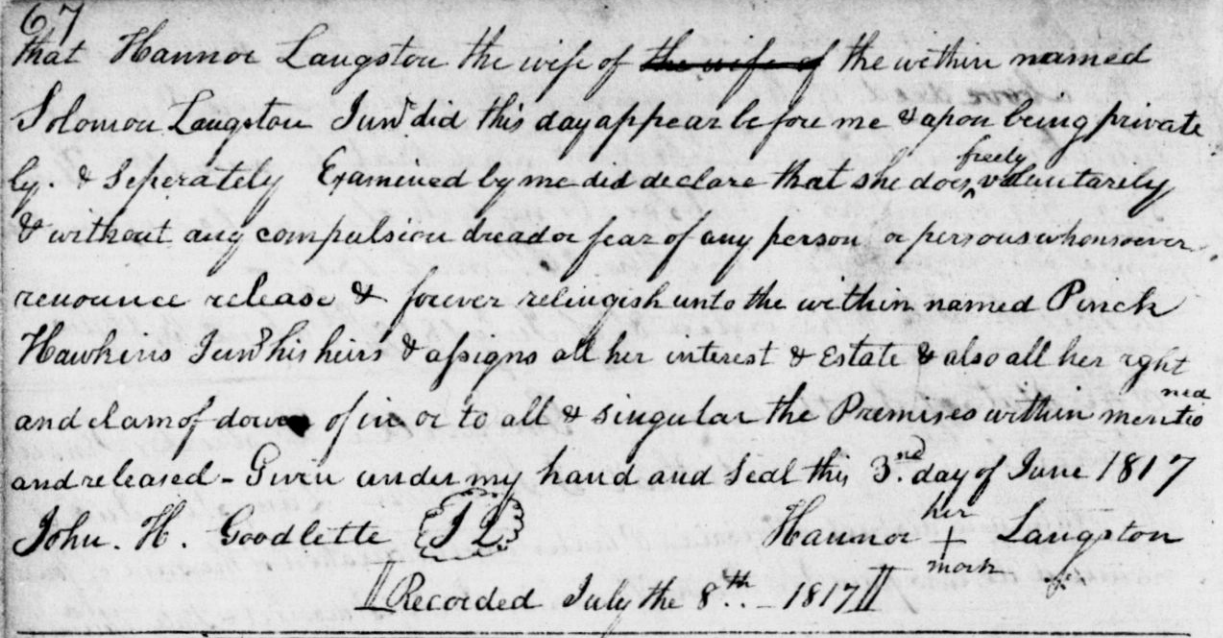 67
that Hannor Langston the wife of the wife of the within named
Solomon Langston Junr did this day appear before me & apon being private
ly. & Seperately Examined by me did declare that she does freely voluntarely
& without any compulsion dread or fear of any person or persons whomsoever
renounce release & forever relinqish unto the within named Pinck
Hawkins Junr his heirs & assigns all her interest & Estate & also all her right
and clam of dower of in or to all & singular the Premises within mentio
ned
and released - Given under my hand and Seal this 3.nd day of June 1817
John. H. Goodlette her
Hannor + Langston
mark
Recorded July the 8th - 1817